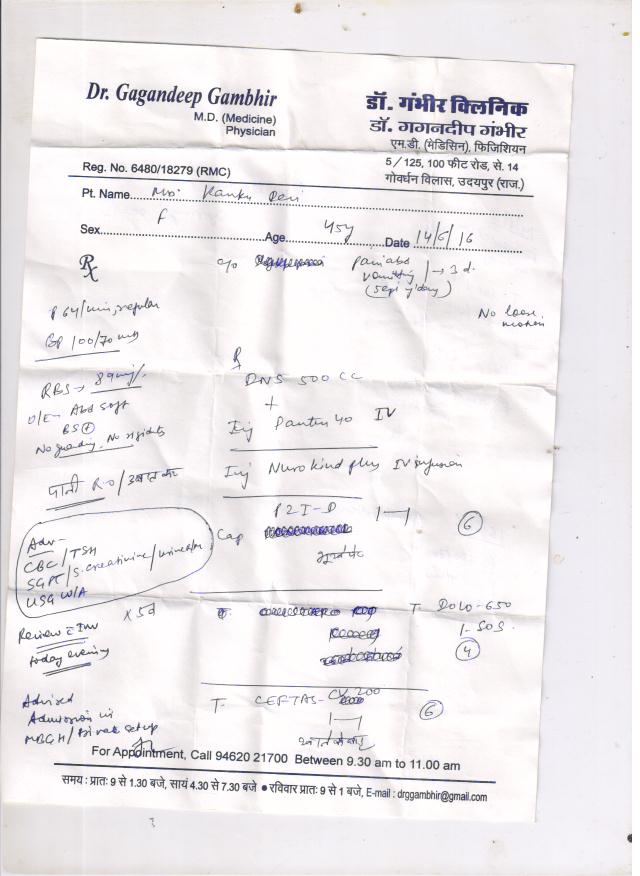 Dr. Gagandeep Gambhir
M.D. (Medicine)
Physician
डॉ. गंभीर क्लिनिक
डॉ. गगनदीप गंभीर
एम.डी. (मेडिसिन), फिजिशियन
5/125, 100 फीट रोड, से. 14
गोवर्धन विलास, उदयपुर (राज.)
Reg. No. 6480/18279 (RMC)
Pt. Name Mrs. Kanku Devi
Sex F Age 45y Date 14/6/16
Rx c/o Pain abs
vomiting → 3 d.
No loose motion
P 64/min, regular
BP 100/70
Rx
RBS → 89mg%
DNS 500 CC
+
O/E - Abd soft
BS +
Inj Pantin 40 IV
No guarding, No rigidity
Inj Nurokind plus IV infusion
पानी R.O/उबालकर
Cap PZI-D 1-1 6
Adv-
CBC/TSH
SGPT/S. creatinine/urine
USG W/A
x 5d
T- DOLO-650
1- SOS
4
Review c Inv
today evening
T- CEFTAS-CV 200 6
1-1
Advised
Admission in
MBGH/Private setup
For Appointment, Call 94620 21700 Between 9.30 am to 11.00 am
समय : प्रातः 9 से 1.30 बजे, सायं 4.30 से 7.30 बजे ● रविवार प्रातः 9 से 1 बजे, E-mail : drggambhir@gmail.com